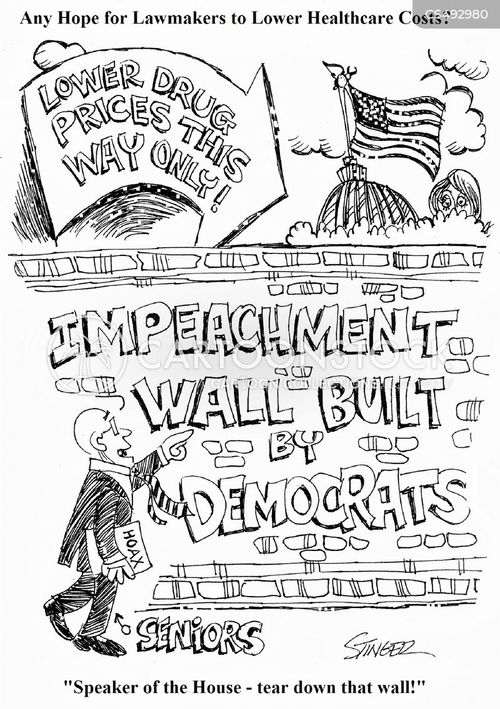 Any Hope for Lawmakers to Lower Healthcare Costs?
CS492980
LOWER DRUG
PRICES THIS
WAY ONLY!
IMPEACHMENT
WALL BUILT
BY
DEMOCRATS
CARTOONSTOCK
HOAX
SENIORS
STINGER
"Speaker of the House - tear down that wall!"